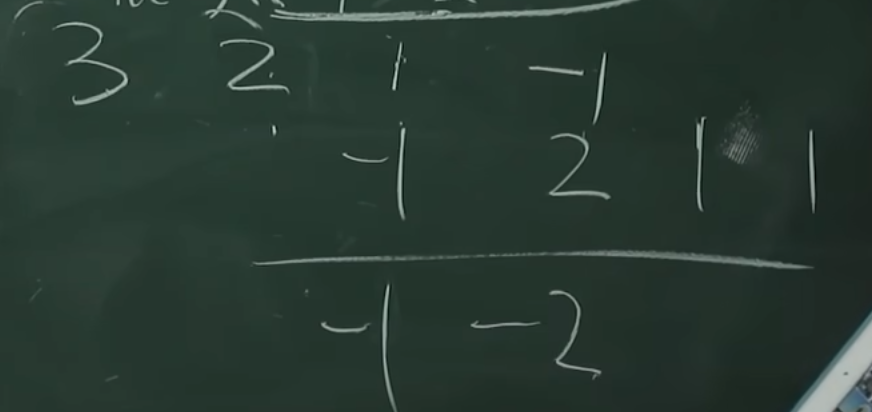 3 2 1 -1
-1 2 1 1
-1 -2